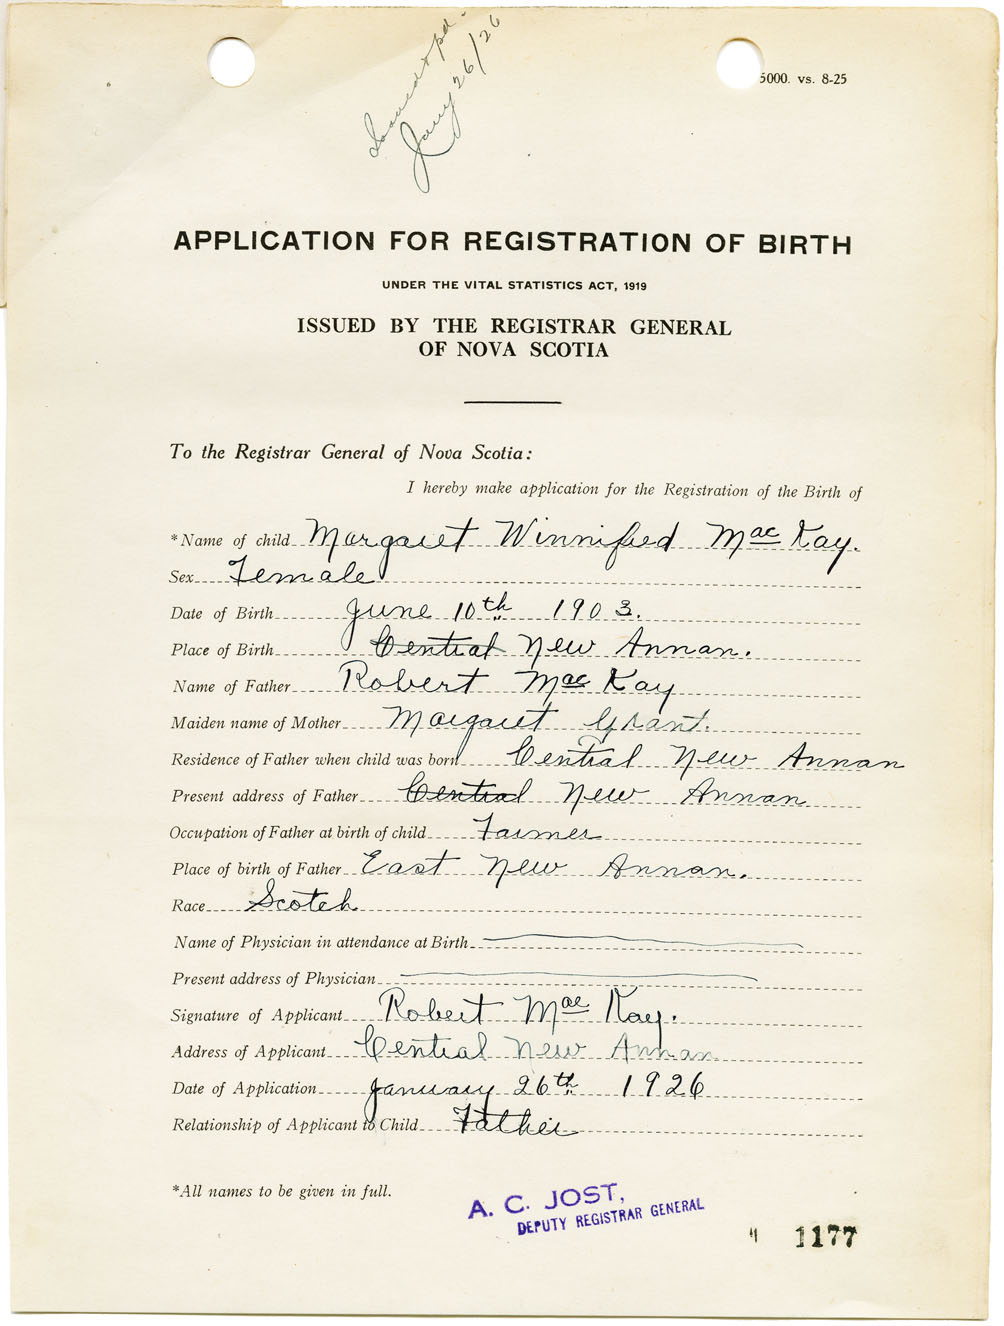 Issued & pd.
Jany 26/26
5000. vs. 8-25
APPLICATION FOR REGISTRATION OF BIRTH
UNDER THE VITAL STATISTICS ACT, 1919
ISSUED BY THE REGISTRAR GENERAL
OF NOVA SCOTIA
To the Registrar General of Nova Scotia:
I hereby make application for the Registration of the Birth of
*Name of child Margaret Winnifred MacKay.
Sex Female
Date of Birth June 10th 1903.
Place of Birth Central New Annan.
Name of Father Robert MacKay
Maiden name of Mother Margaret Grant.
Residence of Father when child was born Central New Annan
Present address of Father Central New Annan
Occupation of Father at birth of child Farmer
Place of birth of Father East New Annan.
Race Scotch
Name of Physician in attendance at Birth
Present address of Physician
Signature of Applicant Robert MacKay.
Address of Applicant Central New Annan
Date of Application January 26th 1926
Relationship of Applicant to Child Father
*All names to be given in full.
A. C. JOST,
DEPUTY REGISTRAR GENERAL
1177